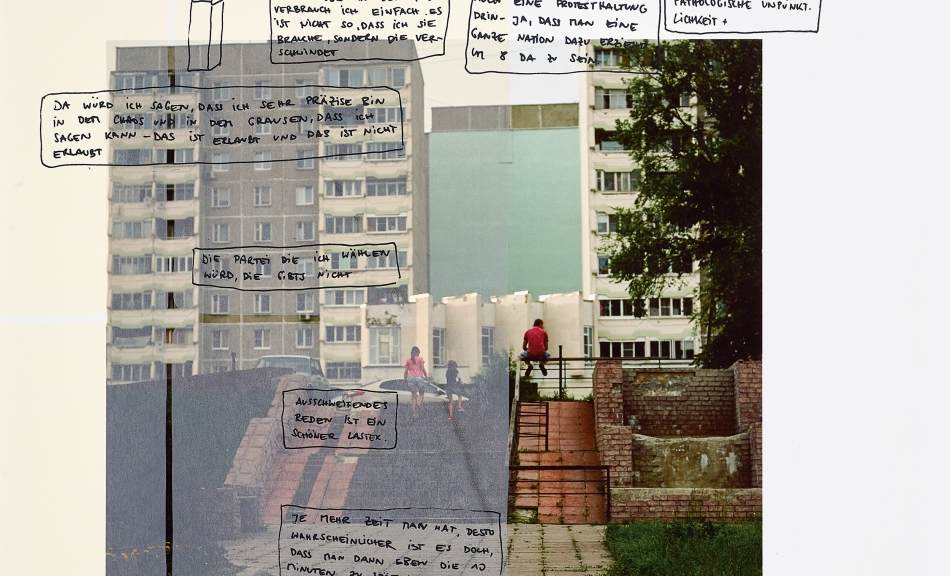 VERBRAUCH ICH EINFACH. ES
IST NICHT SO, DASS ICH SIE
BRAUCHE, SONDERN DIE VER-
SCHWINDET
NOCH EINE PROTESTHALTUNG
DRIN- JA, DASS MAN EINE
GANZE NATION DAZU ERZIEHT
UM 8 DA ZU SEIN
PATHOLOGISCHE UNPÜNKT.
LICHKEIT +
DA WÜRD ICH SAGEN, DASS ICH SEHR PRÄZISE BIN
IN DEM CHAOS UND IN DEM GRAUSEN, DASS ICH
SAGEN KANN - DAS IST ERLAUBT UND DAS IST NICHT
ERLAUBT
DIE PARTEI DIE ICH WÄHLEN
WÜRD, DIE GIBTS NICHT
AUSSCHWEIFENDES
REDEN IST EIN
SCHÖNER LASTER.
JE MEHR ZEIT MAN HAT, DESTO
WAHRSCHEINLICHER IST ES DOCH,
DASS MAN DANN EBEN DIE 10
MINUTEN ZU